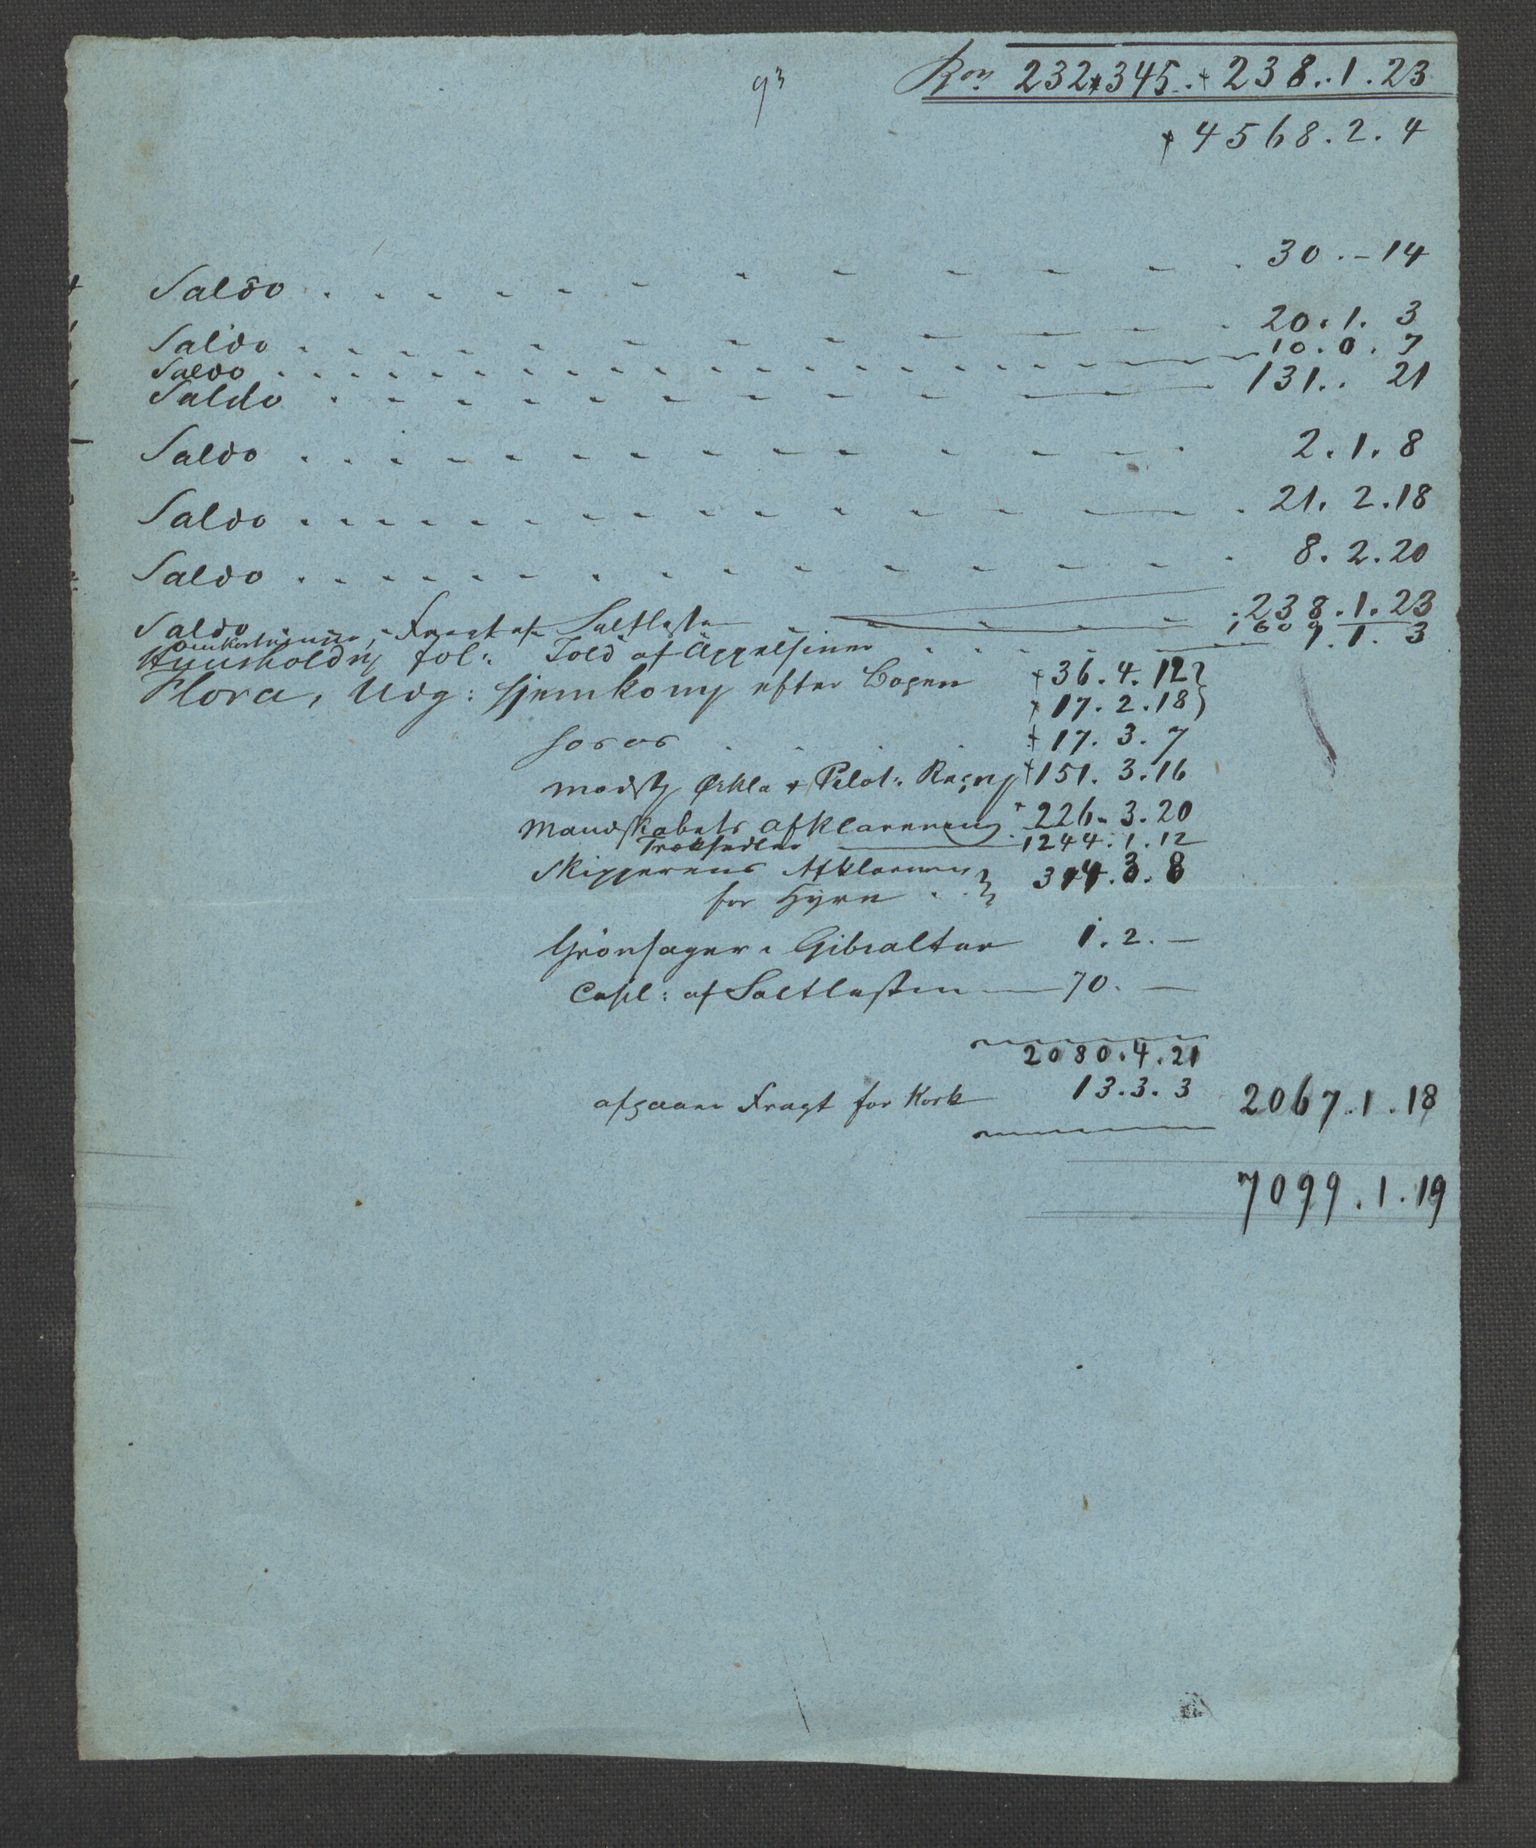 93
Ron 232*345. + 238..1.23
+ 4568.2.4
Saldo 30.-14
Saldo 20.1.3
Saldo 10.0.7
Saldo 131.. 21
Saldo 2.1.8
Saldo 21.2.18
Saldo 8.2.20
Saldo Fragt af Saltlasten 238.1.23
Huusholdn fol: Told af Appelsiner 1609.1.3
Flora, Udg: hjemkomy efter Bogen + 36.4.12
+ 17.2.18
+ 17.3.7
Orkla + Pilot: Regn + 151.3.16
Mandskabets afklarering + 226.3.20
Træksedler 1244.1.12
Skipperens Afklarering
for Hyre 314.3.8
Grönsager i Gibraltar 1.2.—
Capl: af Saltlasten 70.—
2080.4.21
afgaaer Fragt for Kork 13.3.3 2067.1.18
7099.1.19